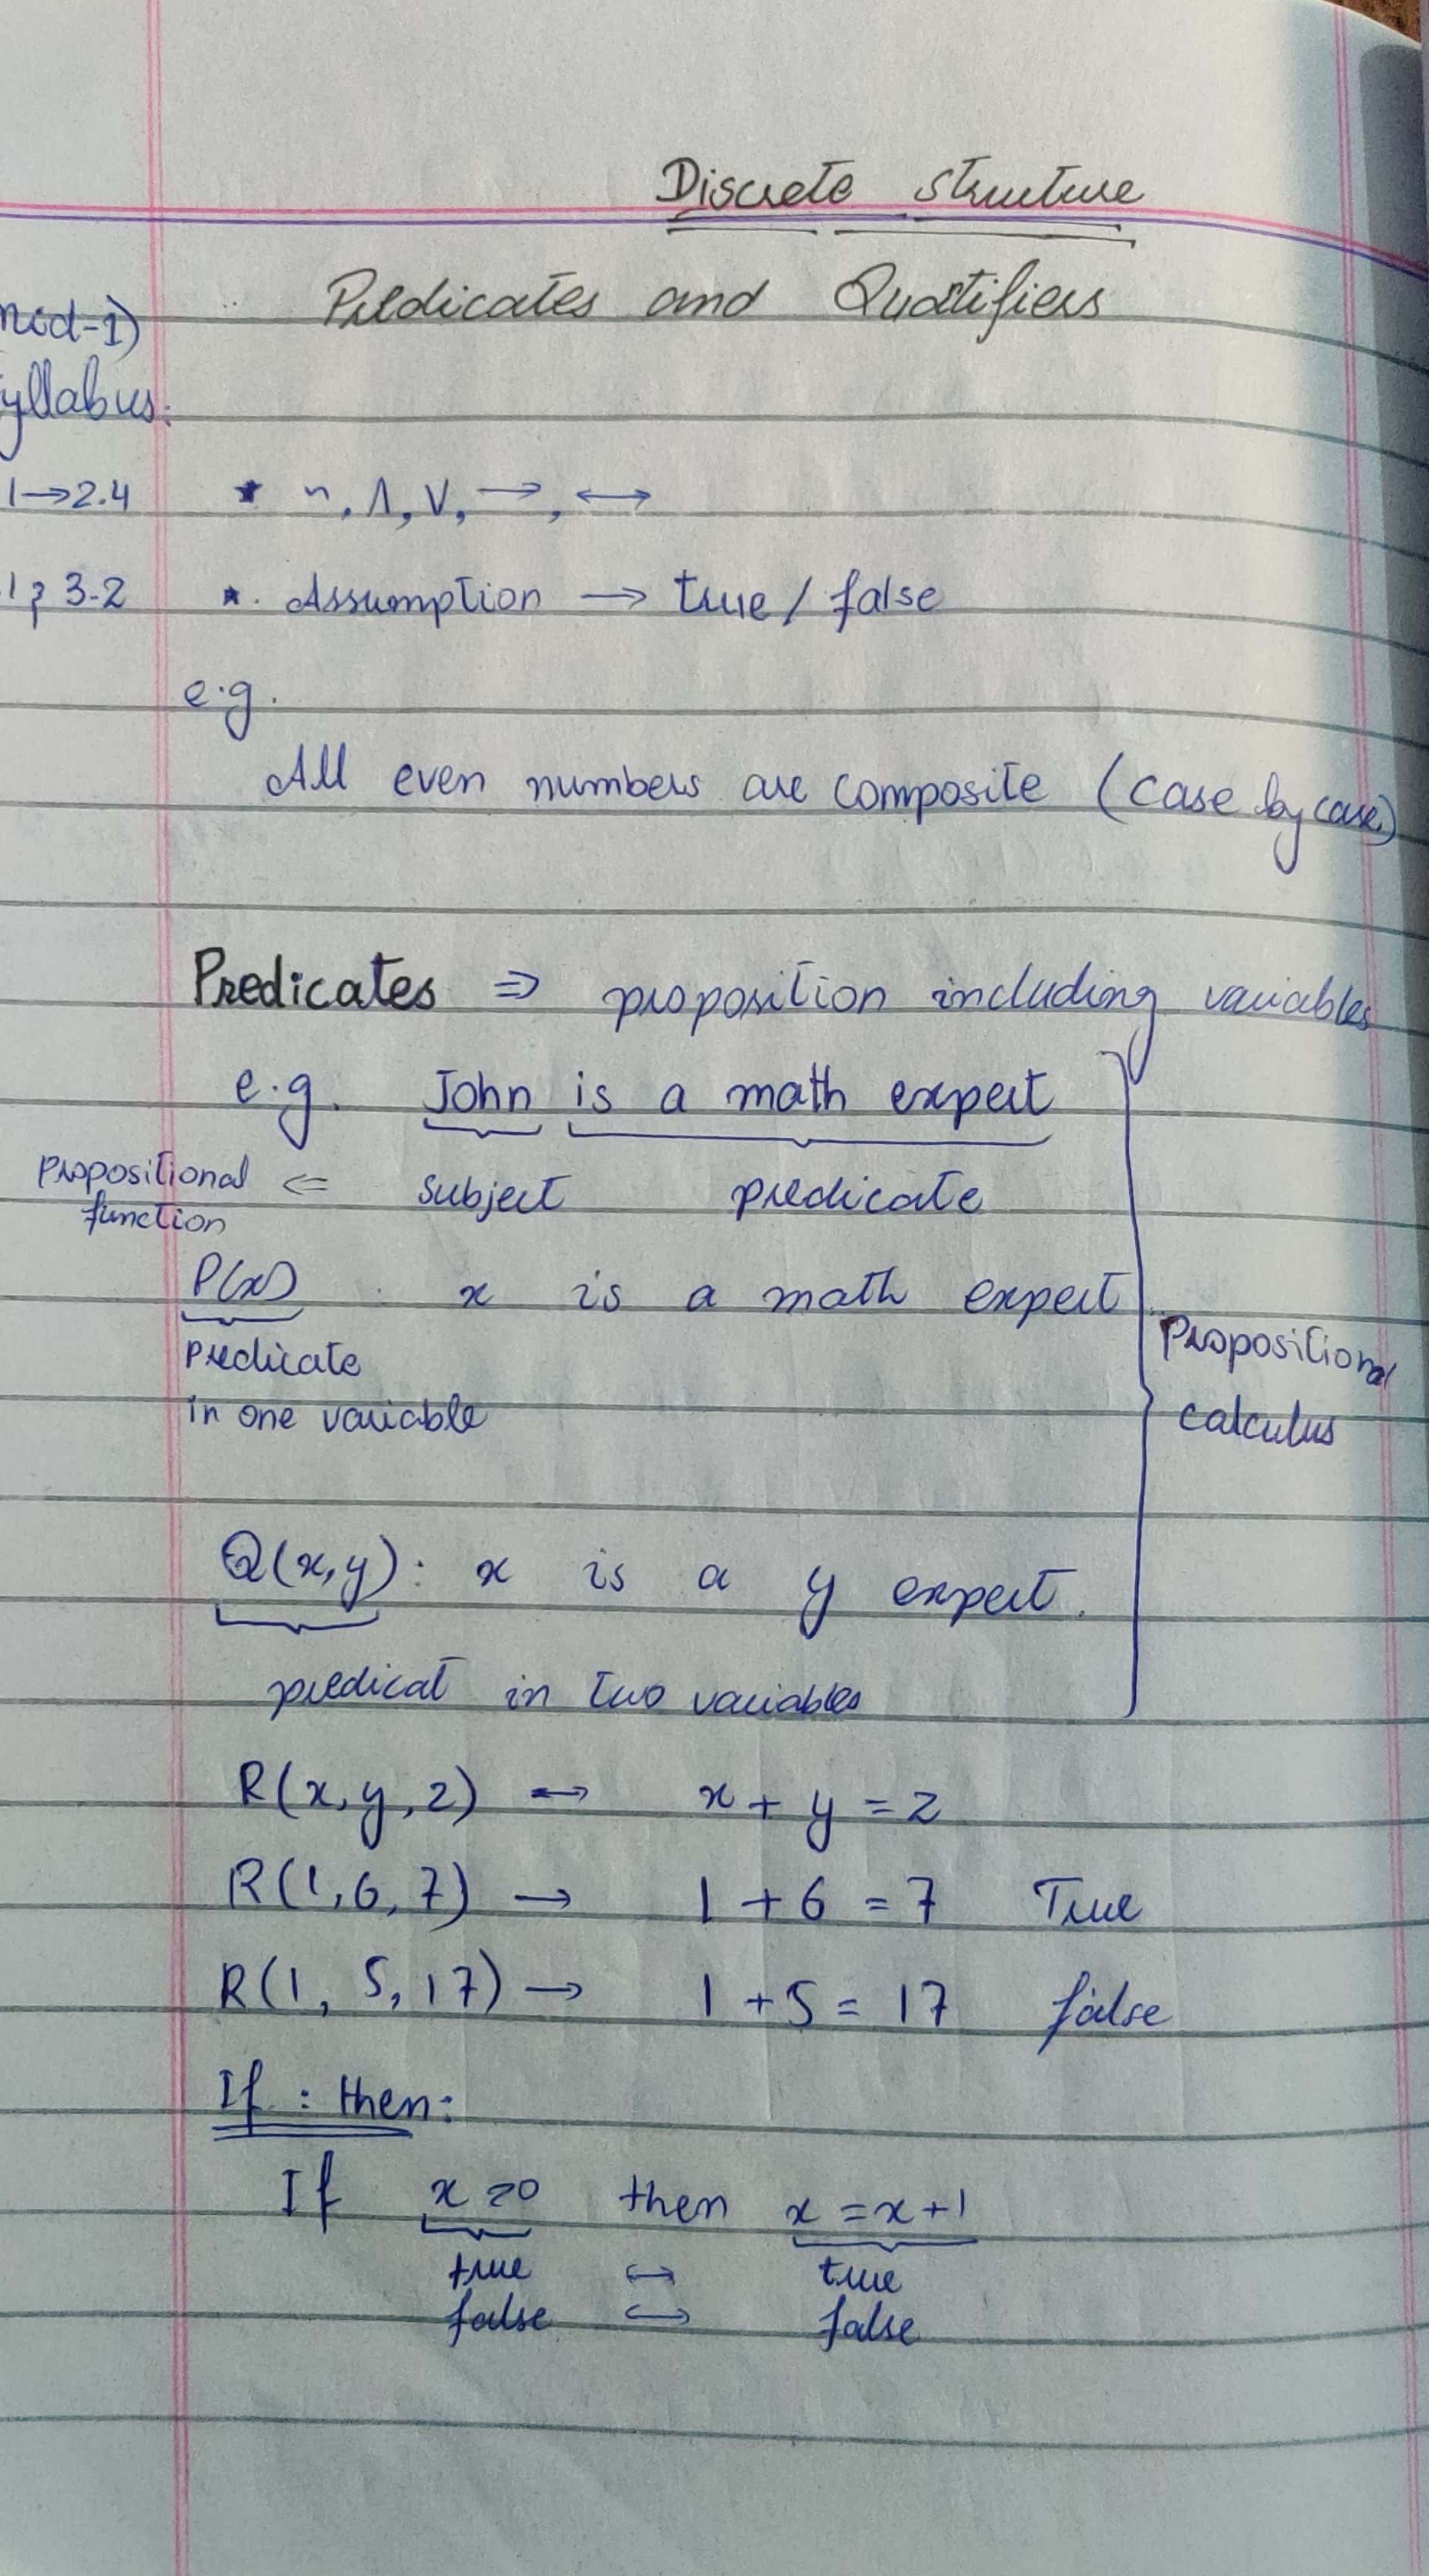 Discrete Structure
Predicates and Quatifiers
mid-1)
yllabus:
1→2.4
* ~, ∧, ∨, →, ↔
1, 3.2
*. Assumption → true / false
e.g.
All even numbers are composite (case by case)
Predicates ⇒ proposition including variables
e.g. John is a math expert
propositional function ⇐ subject predicate
P(x) : x is a math expert
predicate
in one variable
Propositional
calculus
Q(x,y): x is a y expert.
predicat in two variables
R(x,y,z) ↔ x + y = z
R(1,6,7) → 1 + 6 = 7 True
R(1, 5, 17) → 1 + 5 = 17 false
If : then:
If x≥0 then x = x+1
true ↔ true
false ↔ false